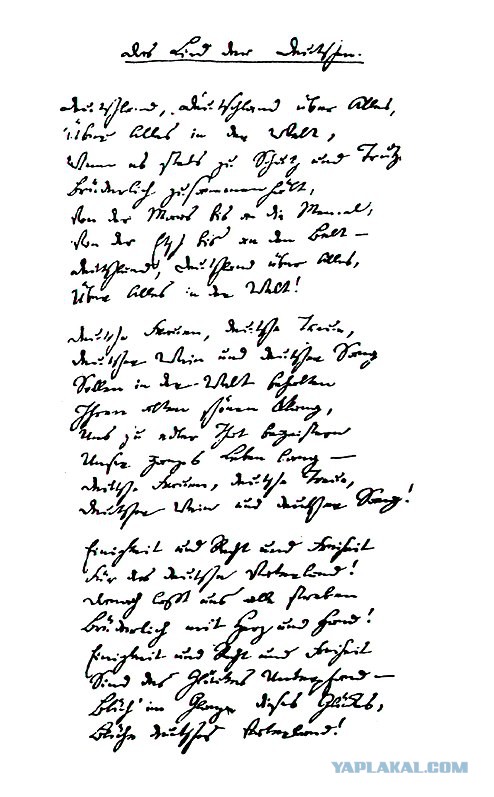 Das Lied der Deutschen.
Deutschland, Deutschland über Alles,
Über Alles in der Welt,
Wenn es stets zu Schutz und Trutz
Brüderlich zusammenhält,
Von der Maas bis an die Memel,
Von der Etsch bis an den Belt –
Deutschland, Deutschland über Alles,
Über Alles in der Welt!
Deutsche Frauen, deutsche Treue,
Deutscher Wein und deutscher Sang
Sollen in der Welt behalten
Ihren alten schönen Klang,
Uns zu edler That begeistern
Unser ganzes Leben lang –
Deutsche Frauen, deutsche Treue,
Deutscher Wein und deutscher Sang!
Einigkeit und Recht und Freiheit
Für das deutsche Vaterland!
Danach laßt uns alle streben
Brüderlich mit Herz und Hand!
Einigkeit und Recht und Freiheit
Sind des Glückes Unterpfand –
Blüh' im Glanze dieses Glückes,
Blühe deutsches Vaterland!
YAPLAKAL.COM